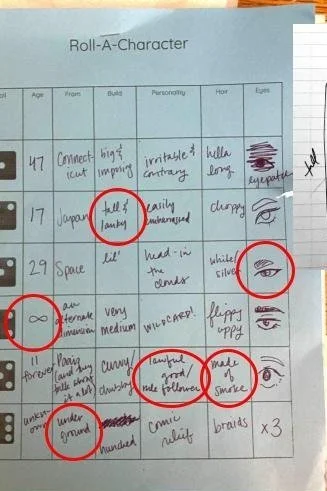 Roll-A-Character
Age From Build Personality Hair Eyes
47 Connect- big & irritable & hella
icut imposing contrary long eyepatch
17 Japan tall & easily choppy
lanky embarrassed
29 Space lil' head-in white/
the silver
clouds
∞ an very WILDCARD! flippy
alternate medium uppy
dimension
11 Paris curvy/ lawful made
forever (and they chubby good/ of
talk about rule follower smoke
it a lot)
unkn- under hunched comic braids x3
own ground relief